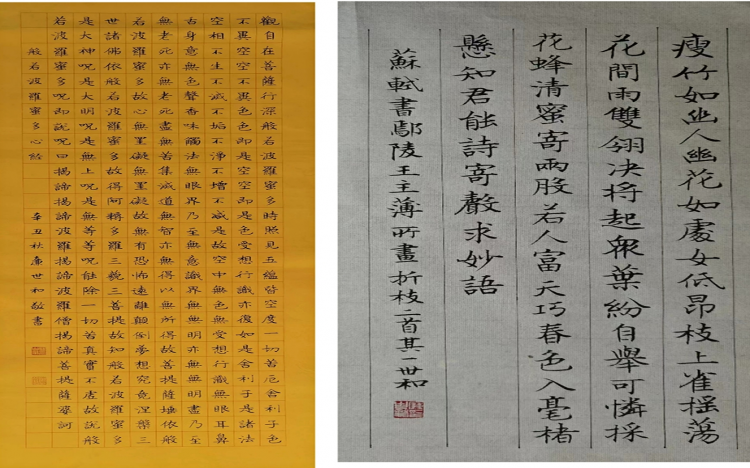 觀自在菩薩行深般若波羅蜜多時照見五蘊皆空度一切苦厄舍利子色
不異空空不異色色即是空空即是色受想行識亦復如是舍利子是諸法
空相不生不滅不垢不淨不增不減是故空中無色無受想行識無眼耳鼻
舌身意無色聲香味觸法無眼界乃至無意識界無無明亦無無明盡乃至
無老死亦無老死盡無苦集滅道無智亦無得以無所得故菩提薩埵依般
若波羅蜜多故心無罣礙無罣礙故無有恐怖遠離顛倒夢想究竟涅槃三
世諸佛依般若波羅蜜多故得阿耨多羅三藐三菩提故知般若波羅蜜多
是大神呪是大明呪是無上呪是無等等呪能除一切苦真實不虛故說般
若波羅蜜多呪即說呪曰揭諦揭諦波羅揭諦波羅僧揭諦菩提薩婆訶
般若波羅蜜多心經
辛丑秋廉世和敬書
瘦竹如幽人幽花如處女低昂枝上雀摇蕩
花間雨雙翎決將起眾葉紛自舉可憐採
花蜂清蜜寄兩股若人富天巧春色入毫楮
懸知君能詩寄聲求妙語
蘇軾書鄢陵王主薄所畫折枝二首其一世和